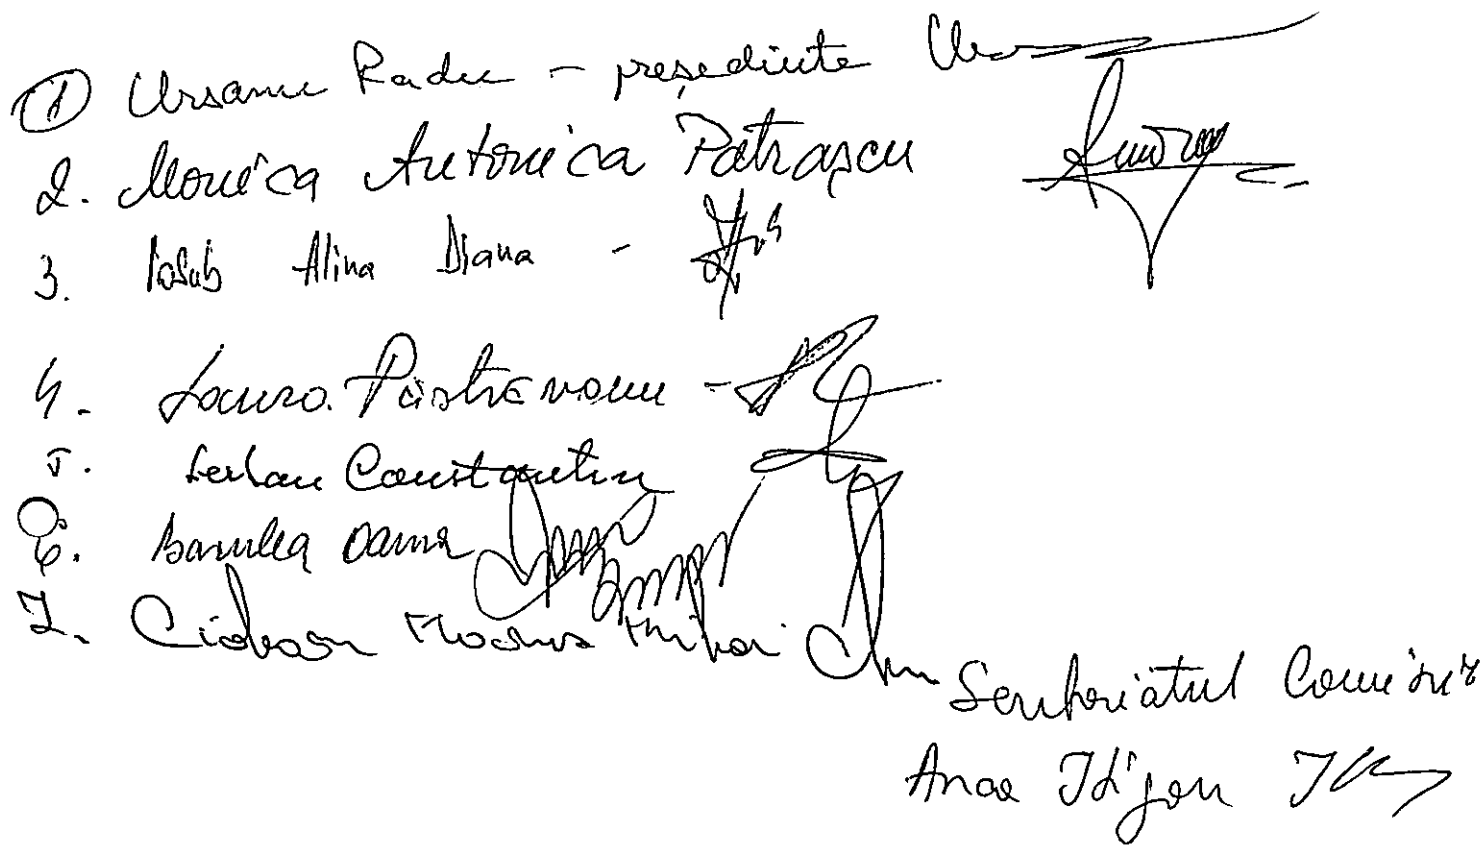 1 Ursanu Radu - președinte
2. Monica Antonica Pătrașcu
3. Iosub Alina Diana -
4. Laura Păstrăvanu -
5. Serban Constantin
6. Oana
7. Cioban Marius Mihai
Secretariatul Comisiei
Ana